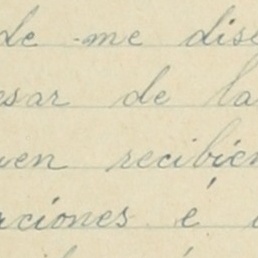 de me dise
esar de la
uen recibien
aciones é